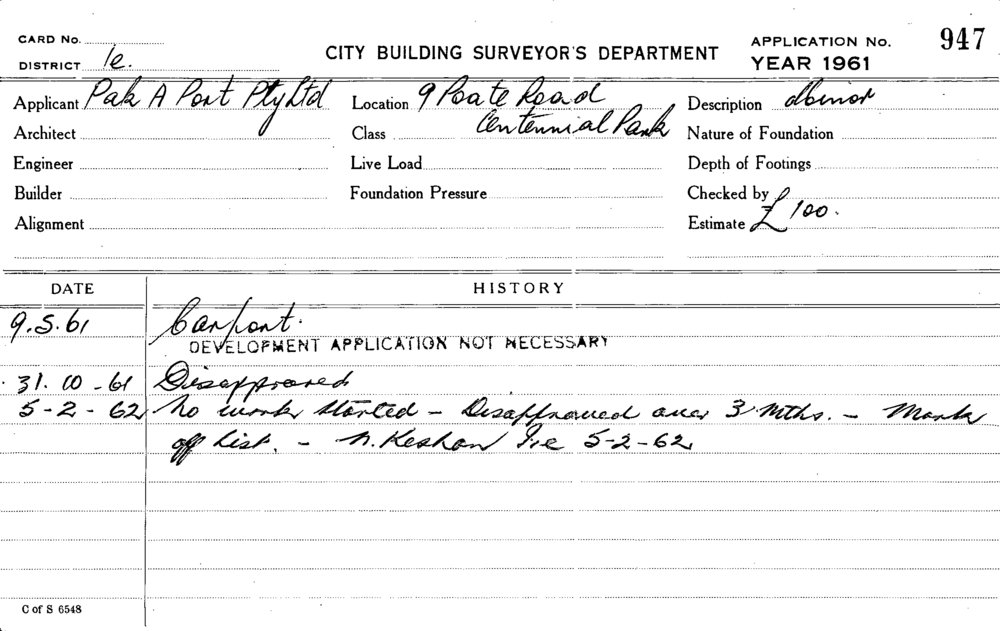 CARD No.
DISTRICT 1e.
CITY BUILDING SURVEYOR'S DEPARTMENT
APPLICATION No. 947
YEAR 1961
Applicant Pak A Port Pty Ltd
Location 9 Poate Road
Centennial Park
Description Minor
Architect
Class
Nature of Foundation
Engineer
Live Load
Depth of Footings
Builder
Foundation Pressure
Checked by
Alignment
Estimate £ 100.
DATE
HISTORY
9.5.61 Carport.
DEVELOPMENT APPLICATION NOT NECESSARY
31.10-61 Disapproved
5-2-62 No work started - Disapproved over 3 Mths. - Mark
off List. - N. Keshan 5-2-62
C of S 6548